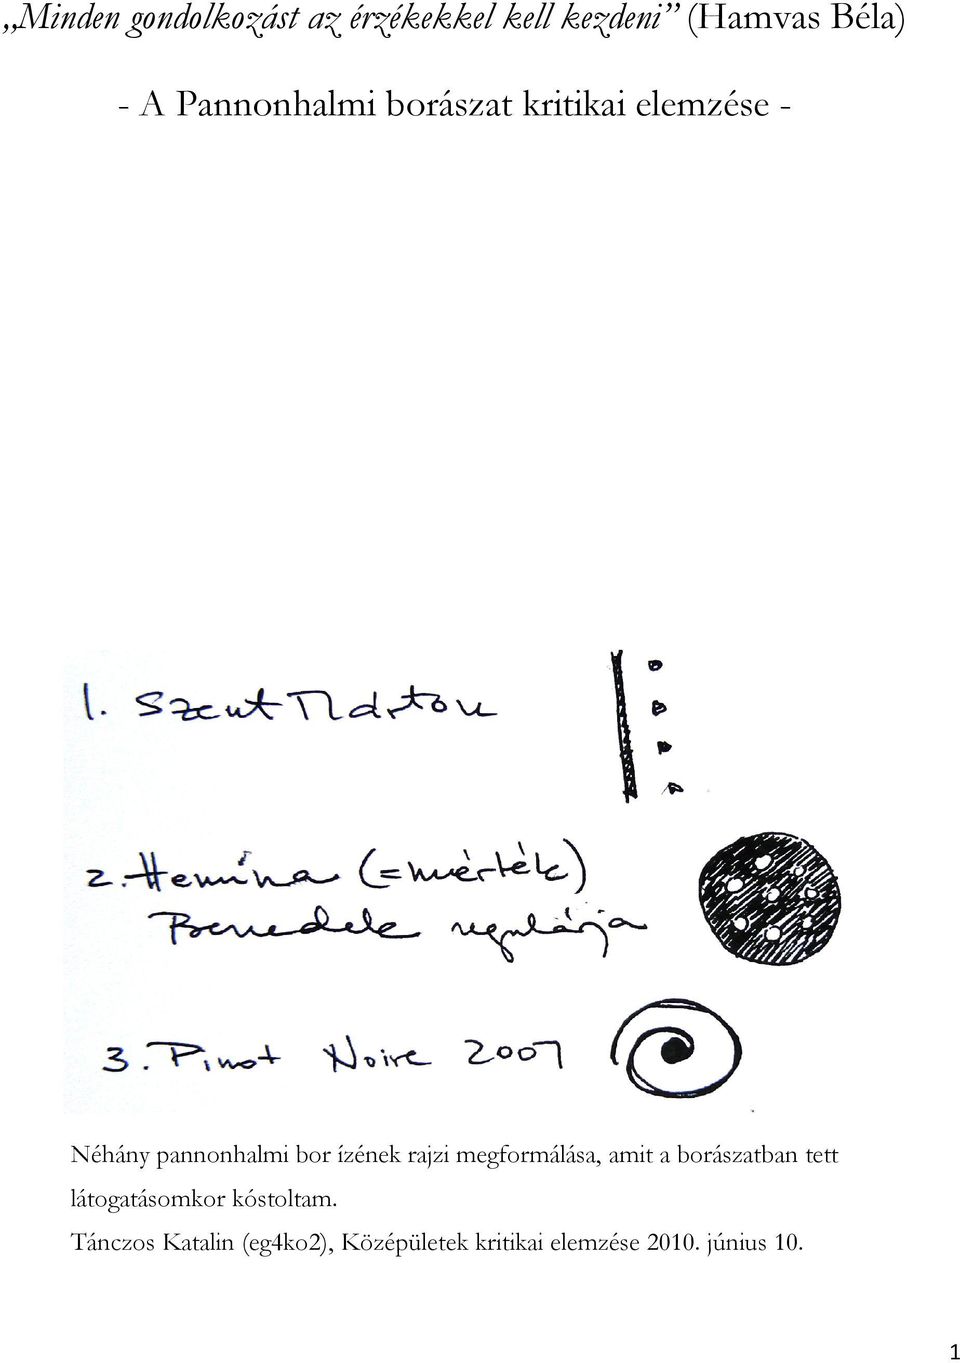 „Minden gondolkozást az érzékekkel kell kezdeni” (Hamvas Béla)
- A Pannonhalmi borászat kritikai elemzése -
1. Szent Márton
2. Hemina (=mérték)
Benedek regulárja
3. Pinot Noire 2007
Néhány pannonhalmi bor ízének rajzi megformálása, amit a borászatban tett
látogatásomkor kóstoltam.
Tánczos Katalin (eg4ko2), Középületek kritikai elemzése 2010. június 10.
1